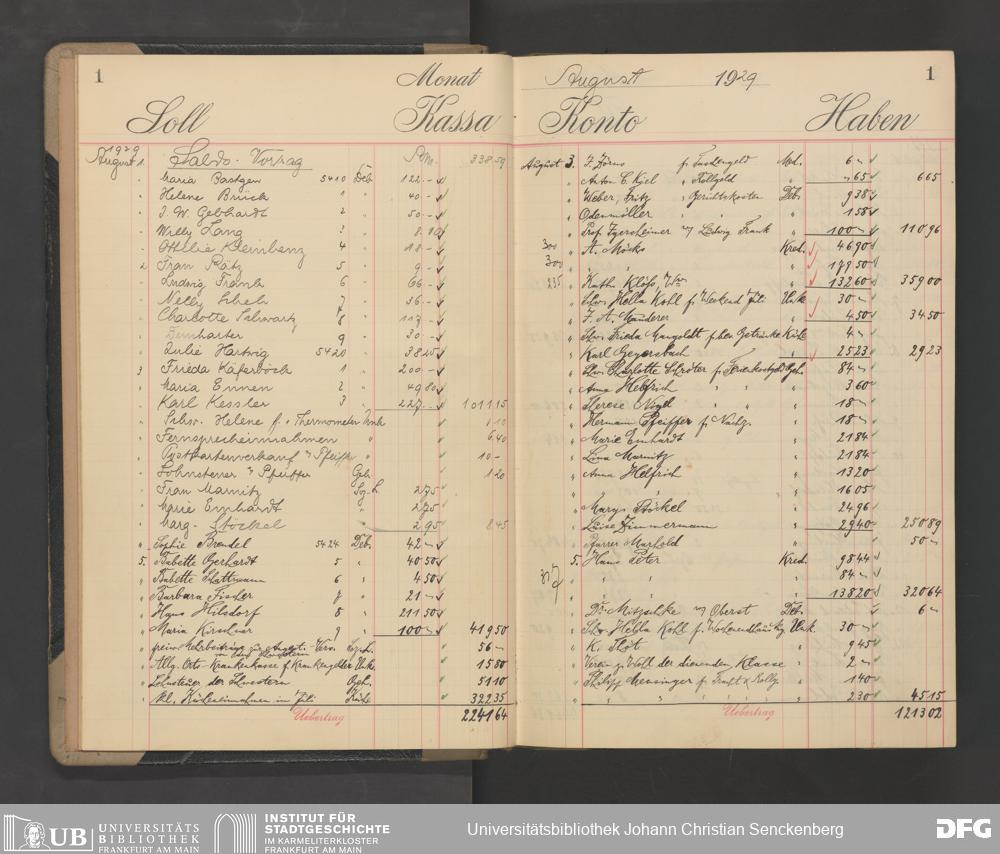 1 Monat
Soll Kassa
1929
August 1. Saldo-Vortrag Rm. 338.59
Maria Bactgen 5410 Deb. 122.--
Helene Brück 1 40.--
J. W. Gebhardt 2 50.--
Willy Lang 3
Ottilie Kleinbenz 4 18.--
2 Fran Rätz 5 9.--
Ludwig Frank 6 66.--
Nelly 7 56.--
Charlotte Schwartz 8
Demharter 9 30.--
Julie Hartwig 5420 38 25
3 Frieda Käferböck 1 200.--
Maria Ennen 2 49 80
Karl Kessler 3 227.-- 1011.15
Schw. Helene f. Thermometer Unk.
Fernsprecheinnahmen 6.40
Postkartenverkauf Pfeiffer 10 --
Lohnsteuer Pfeiffer Geh. 1 20
Fran Marnitz 2.75
Marie Emhardt 2.75
Marg. Stöckel 2 95 8.45
Sophie Brendel 5424 Deb. 42 --
5. Babette Gerhardt 5 40 50
Babette Schattmann 6 4 50
Barbara Fischer 7 21 --
Hans Hilsdorf 8 211 50
Maria Kirschner 9 100 -- 419 50
56 --
Allg. Orts Krankenkasse f. Krankengelder Unk. 15 80
Lohnsteuer der Schwestern Geh. 51 10
Kl. Kücheneinnahmen im Juli Küche 322 35
Uebertrag 2241 64
August 1929 1
Konto Haben
August 3. f. Taschengeld 6 --
Anton C. Kjel " Rollgeld 65 6 65
Weber, Fritz " Gerichtskosten Deb. 9 38
Odenmüller 1 58
Prof. Igersheimer Ludwig Frank 100 -- 110 96
300 A. Möcks Kred. 46 90
300 179 50
235 Käthe Klöß, Wwe 132 60 359 00
Schw. Hella Kohl f. Weekend Juli Unk. 30 --
F. A. Mauderer 4 50 34 50
Schw. Frieda Mangoldt Getränke Küche 4 --
Karl Geyersbach 25 23 29 23
Schw. Charlotte Schröter f. Ferienkostgeld Geh. 84 --
Anna Helfrich 3 60
Therese Nogl 18 --
Hermann Pfeiffer f. Nachz. 18 --
Marie Emhardt 21 84
Lina Marnitz 21 84
Anna Helfrich 13 20
16 05
Marg. Stöckel 24 96
Luise Zimmermann 29 40 250 89
Pfarrer Marhold 50 --
5. Hans Peter Kred. 98 44
84 --
138 20 320 64
Dr. Mitzschke Oberst Deb. 6 --
Schw. Hella Kohl f. Unk. 30 --
K. Thöt 9 45
Verein z. Wohl der dienenden Klasse 2 --
Philipp Mensinger f. Fracht & Rollg. 1 40
" " 2 30 45 15
Uebertrag 1213 02
UB UNIVERSITÄTS
BIBLIOTHEK
FRANKFURT AM MAIN
INSTITUT FÜR
STADTGESCHICHTE
IM KARMELITERKLOSTER
FRANKFURT AM MAIN
Universitätsbibliothek Johann Christian Senckenberg
DFG